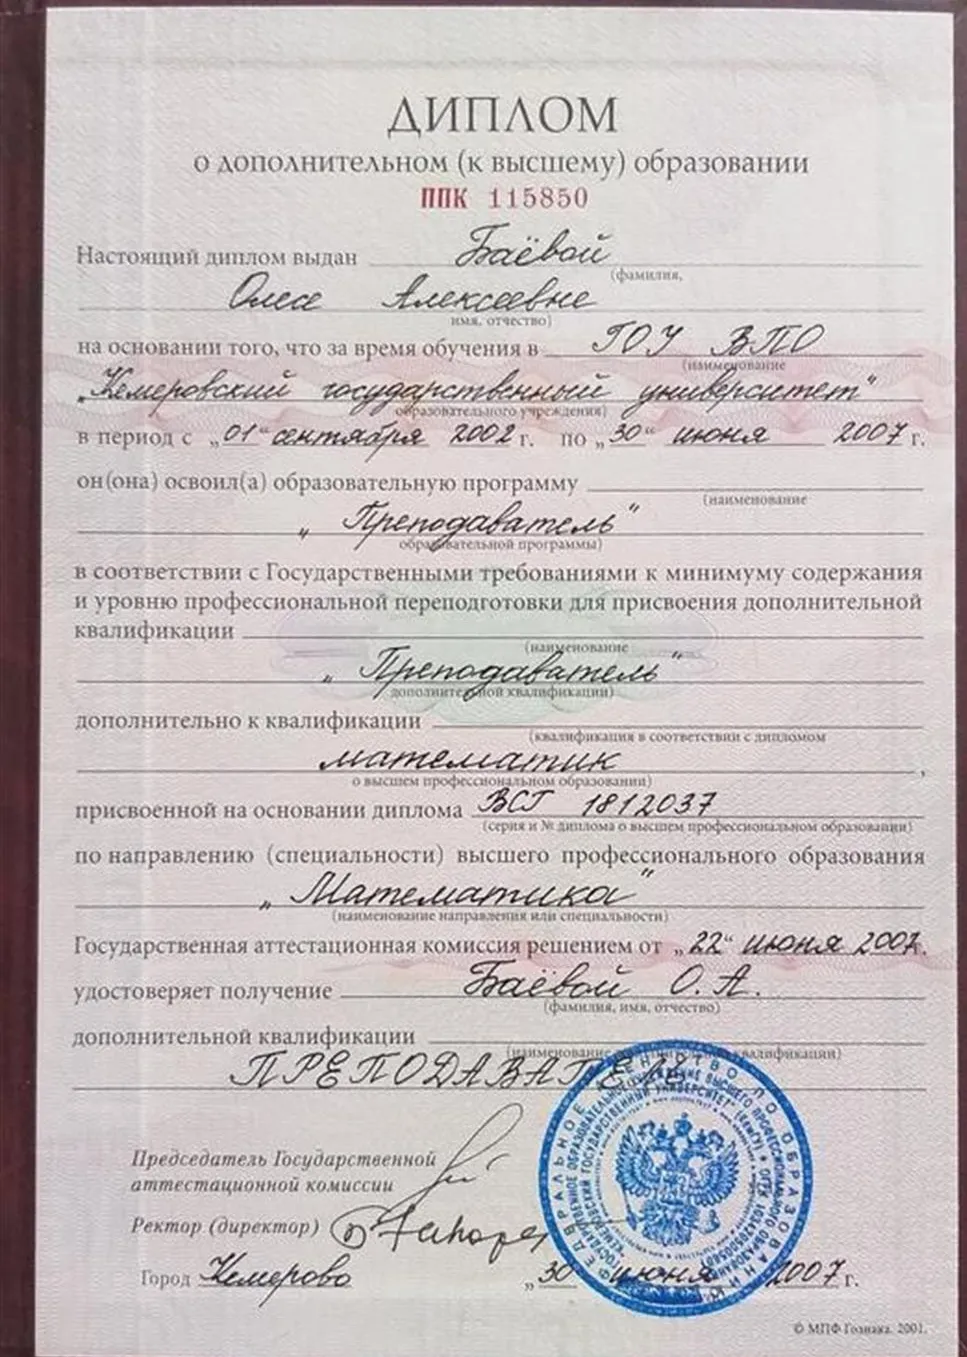 ДИПЛОМ
о дополнительном (к высшему) образовании
ППК 115850
Настоящий диплом выдан Баёвой
(фамилия,
Олесе Алексеевне
имя, отчество)
на основании того, что за время обучения в ГОУ ВПО
(наименование
„Кемеровский государственный университет"
образовательного учреждения)
в период с „01" сентября 2002 г. по „30" июня 2007 г.
он(она) освоил(а) образовательную программу
(наименование
„Преподаватель"
образовательной программы)
в соответствии с Государственными требованиями к минимуму содержания
и уровню профессиональной переподготовки для присвоения дополнительной
квалификации
(наименование
„Преподаватель"
дополнительной квалификации)
дополнительно к квалификации
(квалификация в соответствии с дипломом
математик,
о высшем профессиональном образовании)
присвоенной на основании диплома ВСГ 1812037
(серия и № диплома о высшем профессиональном образовании)
по направлению (специальности) высшего профессионального образования
„Математика"
(наименование направления или специальности)
Государственная аттестационная комиссия решением от „22" июня 2007г.
удостоверяет получение Баёвой О. А.
(фамилия, имя, отчество)
дополнительной квалификации
(наименование дополнительной квалификации)
ПРЕПОДАВАТЕЛЬ
ФЕДЕРАЛЬНОЕ АГЕНТСТВО ПО ОБРАЗОВАНИЮ
Председатель Государственной
аттестационной комиссии
Ректор (директор)
Город Кемерово „30 июня 2007 г.
© МПФ Гознака. 2001.